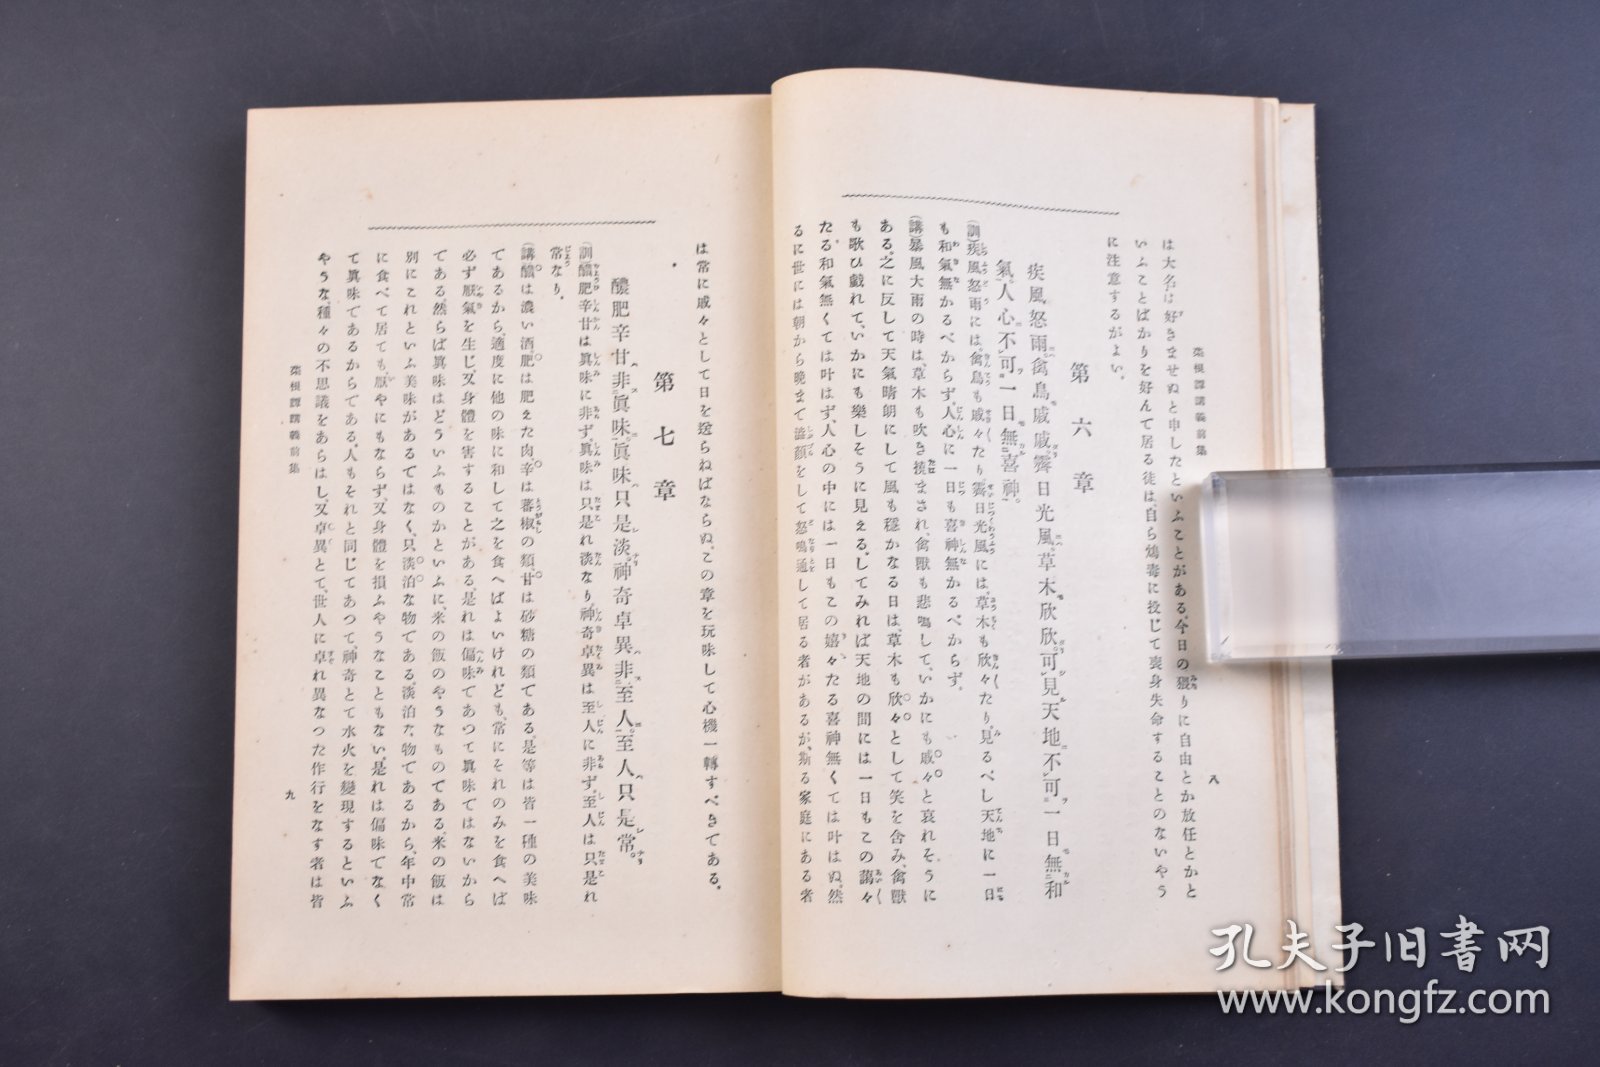 菜根譚講義前集
八
は大名は好きませぬと申したといふことがある。今日の猥りに自由とか放任とかと
いふことばかりを好んで居る徒は、自ら鴆毒に投じて喪身失命することのないやう
に注意するがよい。
第六章
疾風怒雨、禽鳥戚戚。霽日光風、草木欣欣。可見天地不可一日無和
氣、人心不可一日無喜神。
(訓)疾風怒雨には、禽鳥も戚々たり、霽日光風には、草木も欣々たり。見るべし天地に一日
も和氣無かるべからず、人心に一日も喜神無かるべからず。
(講)暴風大雨の時は、草木も吹き撓まされ、禽獸も悲鳴して、いかにも戚々と哀れそうに
ある。之に反して天氣晴朗にして風も穩かなる日は、草木も欣々として笑を含み、禽獸
も歌ひ戯れて、いかにも樂しそうに見える。してみれば天地の間には一日もこの藹々
たる和氣無くては叶はず、人心の中には一日もこの嬉々たる喜神無くては叶はぬ。然
るに世には朝から晩まで澁顏をして怒鳴通して居る者があるが、斯る家庭にある者
は常に戚々として日を送らねばならぬ。この章を玩味して心機一轉すべきである。
第七章
醲肥辛甘非眞味、眞味只是淡。神奇卓異非至人、至人只是常。
(訓)醲肥辛甘は眞味に非ず、眞味は只是れ淡なり、神奇卓異は至人に非ず、至人は只是れ
常なり。
(講)醲は濃い酒、肥は肥えた肉、辛は蕃椒の類、甘は砂糖の類である。是等は皆一種の美味
であるから、適度に他の味に和して之を食へばよいけれども、常にそれのみを食へば
必ず厭氣を生じ、又身體を害することがある、是れは偏味であつて眞味ではないから
である。然らば眞味はどういふものかといふに、米の飯のやうなものである。米の飯は
別にこれといふ美味があるではなく、只淡泊な物である。淡泊な物であるから、年中常
に食べて居ても、厭やにもならず、又身體を損ふやうなこともない、是れは偏味でなく
て眞味であるからである。人もそれと同じであつて、神奇とて水火を變現するといふ
やうな、種々の不思議をあらはし、又卓異とて、世人に卓れ異なつた作行をなす者は皆
菜根譚講義前集
九
孔夫子旧书网
www.kongfz.com